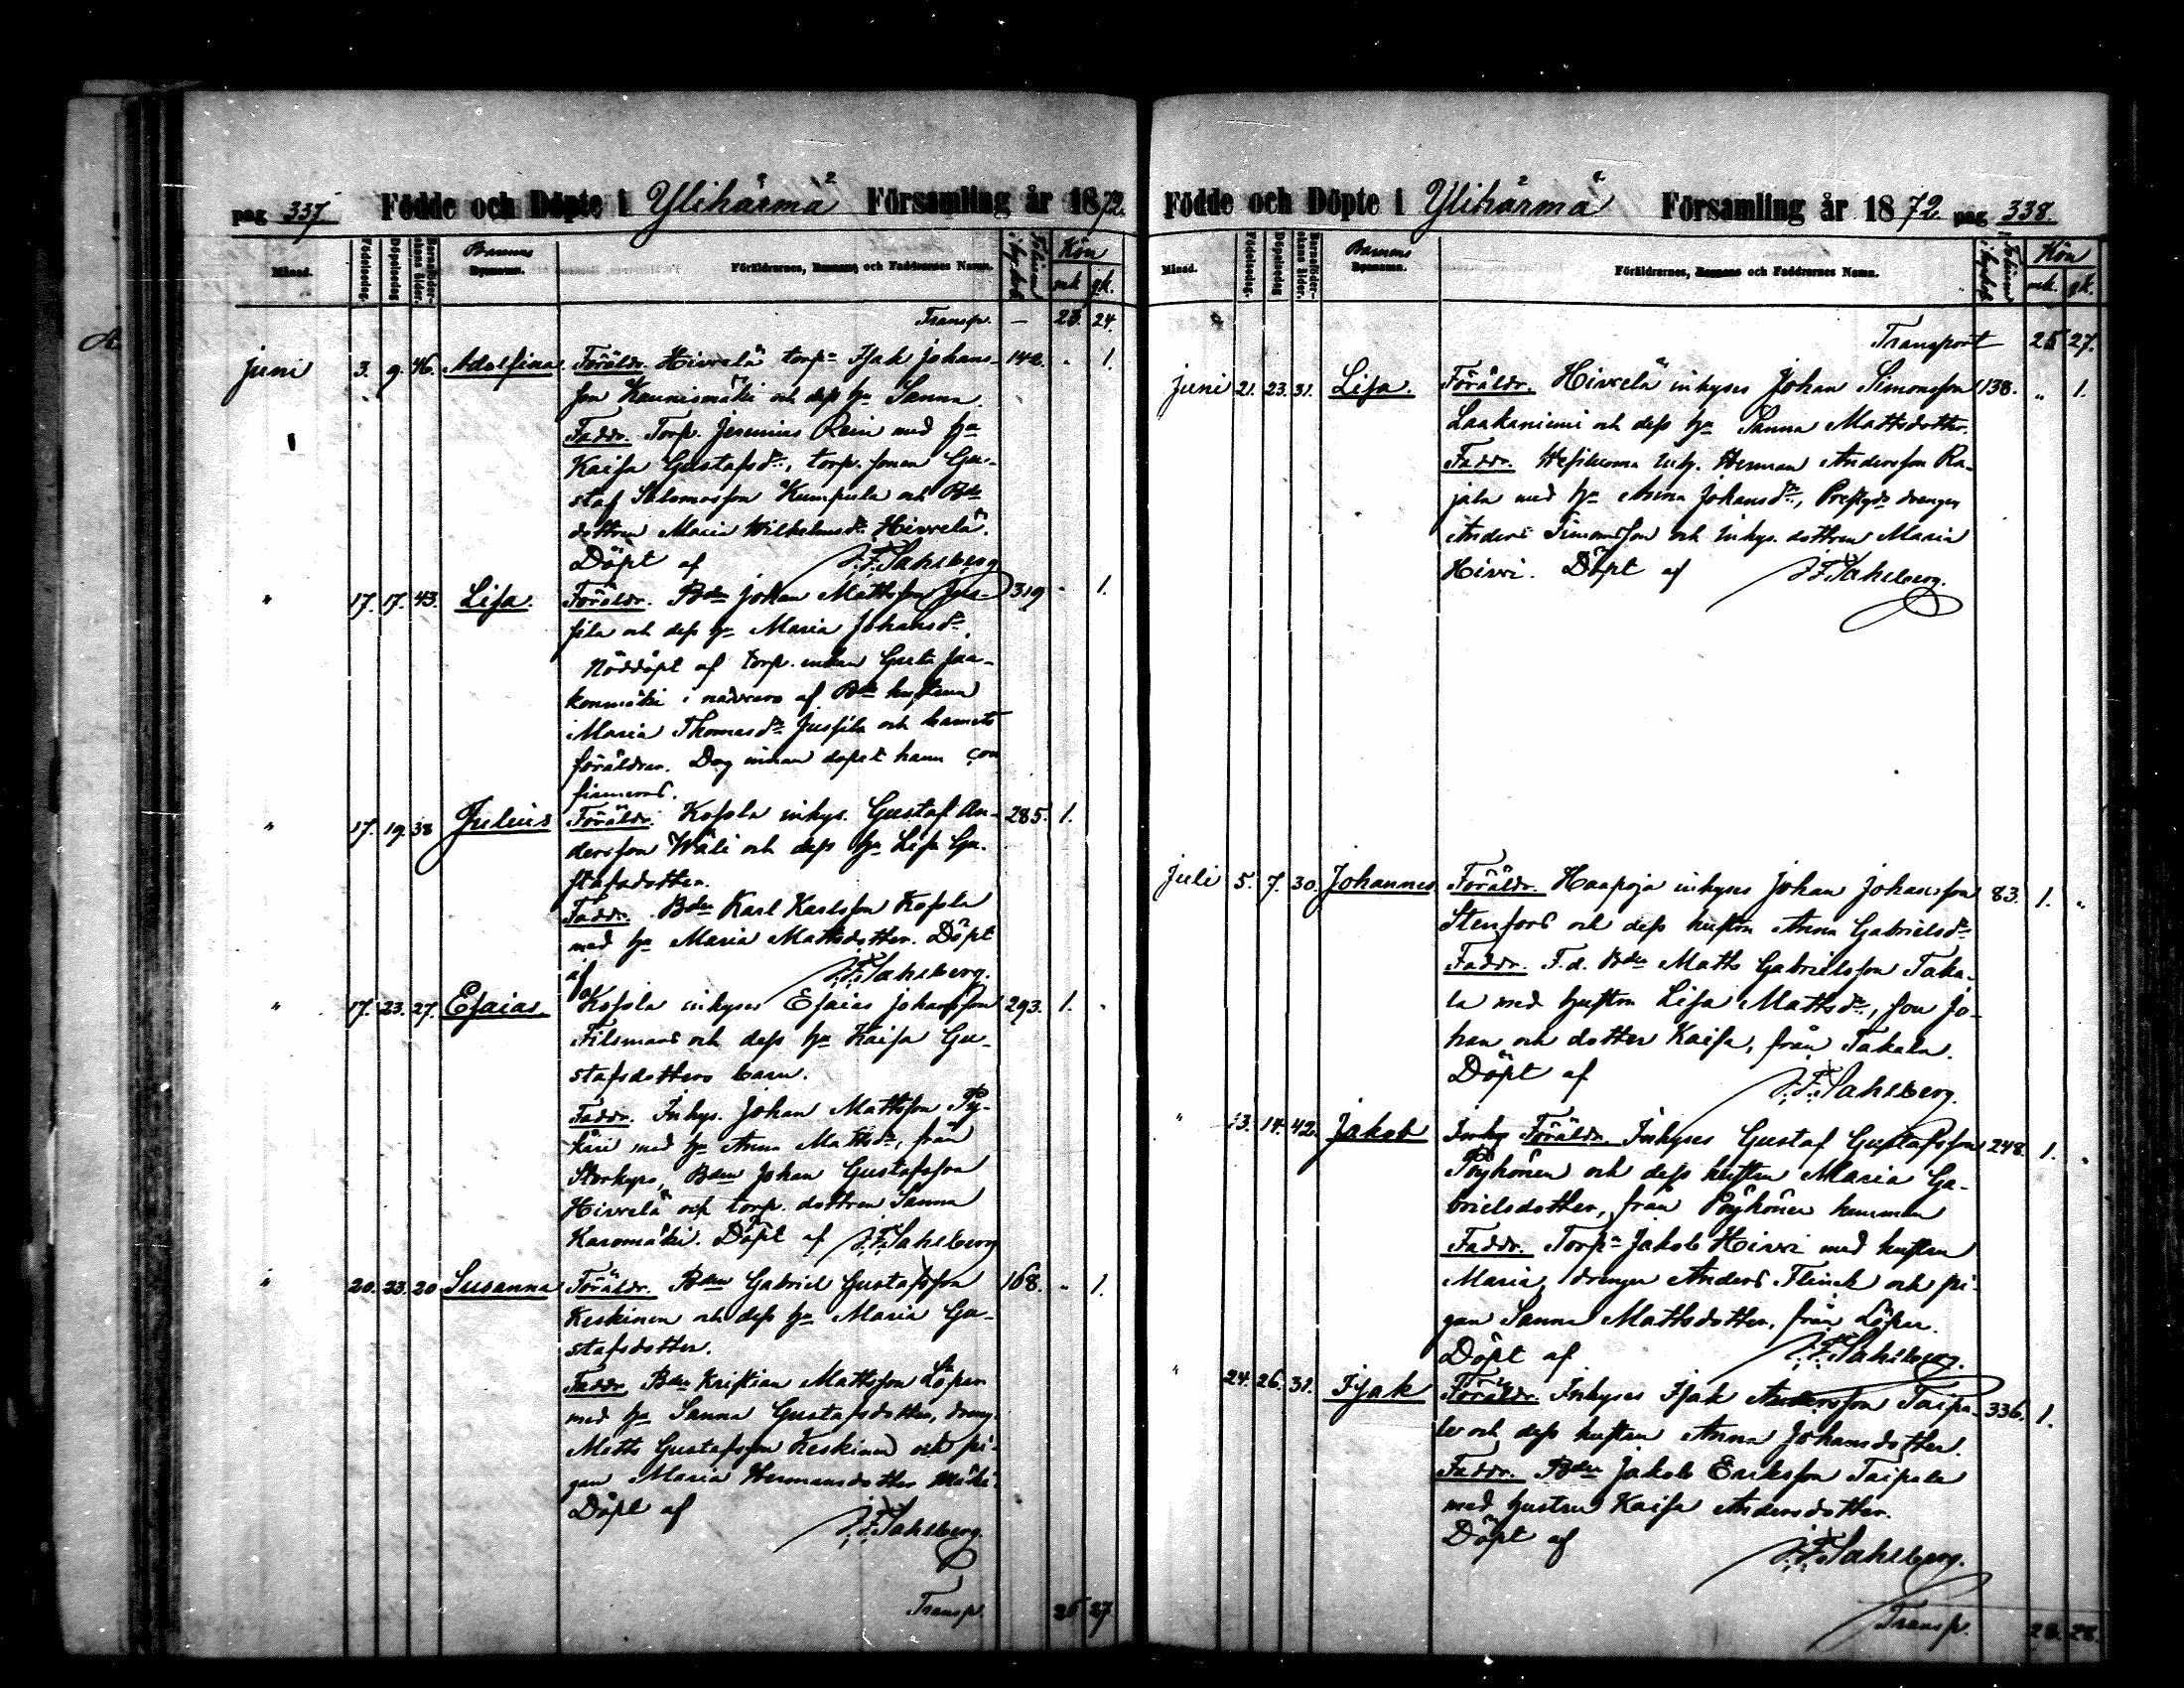 pag 337 Födde och Döpte i Ylihärmä Församling år 1872.
Månad. Födelsedag. Döpelsedag Barnaföderskans ålder. Barnens Dopnamn. Föräldrarnes, Barnens och Faddrarnes Namn. Kön
mk. qk.
Transp. — 23. 24.
juni 3. 9. 46. Adolfina. Föräldr. Hirvelä torp. Isak Johans- 142. „ 1.
son Kaunismäki och dess hu Sanna.
Faddr. Torp. Jeremias Rein med hu
Kaisa Gustafsdr, torp. sonen Gu-
staf Salomosson Kumpula och Bde
dottren Maria Wilhelmsdr Hirvelä.
Döpt af J. F. Sahlberg
„ 17. 17. 43. Lisa. Föräldr. Bdn Johan Mattsson Jus- 319 „ 1.
sila och dess hu Maria Johansdr.
Nöddöpt af torp. enkan Greta Jaa-
konmäki i närvaro af Bde hustrun
Maria Thomasdr Jussila och barnets
föräldrar. Dog innan dopet hann con
firmeras.
„ 17. 19. 38 Julius Föräldr. Kosola inhys. Gustaf An- 285. 1.
dersson Wäli och dess hu Lisa Gu-
stafsdotter.
Faddr. Bden Karl Karlsson Kosola
med hu Maria Mattsdotter. Döpt
af J. F. Sahlberg.
„ 17. 23. 27. Esaias Kosola inhyses Esaias Johansson 293. 1. „
Filsmans och dess hu Kaisa Gu-
stafsdotters barn.
Faddr. Inhys. Johan Mattsson Py-
käri med hu Anna Mattsdr, från
Storkyro, Bden Johan Gustafsson
Hirvelä och torp. dottren Sanna
Karomäki. Döpt af J. F. Sahlberg
„ 20. 23. 20 Susanna Föräldr. Bden Gabriel Gustafsson 168. „ 1.
Keskinen och dess hu Maria Gu-
stafsdotter.
Faddr. Bden Kristian Mattsson Löper
med hu Sanna Gustafsdotter, dreng.
Matts Gustafsson Keskinen och pi-
gan Maria Hermansdotter Mäki.
Döpt af J. F. Sahlberg.
Transp. 25 27
Födde och Döpte i Ylihärmä Församling år 1872. pag 338.
Månad. Födelsedag. Döpelsedag Barnaföderskans ålder. Barnens Dopnamn. Föräldrarnes, Barnens och Faddrarnes Namn. Kön
mk. qk.
Transport 25 27.
juni 21. 23. 31. Lisa. Föräldr. Hirvelä inhyses Johan Simonsson 138. „ 1.
Laakaniemi och dess hu Sanna Mattsdotter.
Faddr. Inh. Herman Andersson Ra-
jala med hu Anna Johansdr, drengen
Anders Simonsson och inhys. dottren Maria
Hirvi. Döpt af J. F. Sahlberg.
Juli 5. 7. 30. Johannes Föräldr. Haapoja inhyses Johan Johansson 83. 1. „
Stenfors och dess hustru Anna Gabrielsdr
Faddr. F. d. Bden Matts Gabrielsson Taka-
la med hustru Lisa Mattsdr, son Jo-
han och dotter Kaisa, från Takala.
Döpt af J. F. Sahlberg.
„ 13. 14. 42. Jakob Inhy Föräldr. Inhyses Gustaf Gustafsson 248. 1. „
Pöyhönen och dess hustru Maria Ga-
brielsdotter, från Pöyhönen hemman
Faddr. Torp. Jakob Hirvi med hustru
Maria, drengen Anders Flinck och pi-
gan Sanna Mattsdotter, från Löper.
Döpt af J. F. Sahlberg.
„ 24. 26. 31. Isak Föräldr. Inhyses Isak Andersson Taipa- 336. 1.
le och dess hustru Anna Johansdotter.
Faddr. Bden Jakob Eriksson Taipale
med hustru Kaisa Andersdotter.
Döpt af J. F. Sahlberg.
Transp. 28. 28.